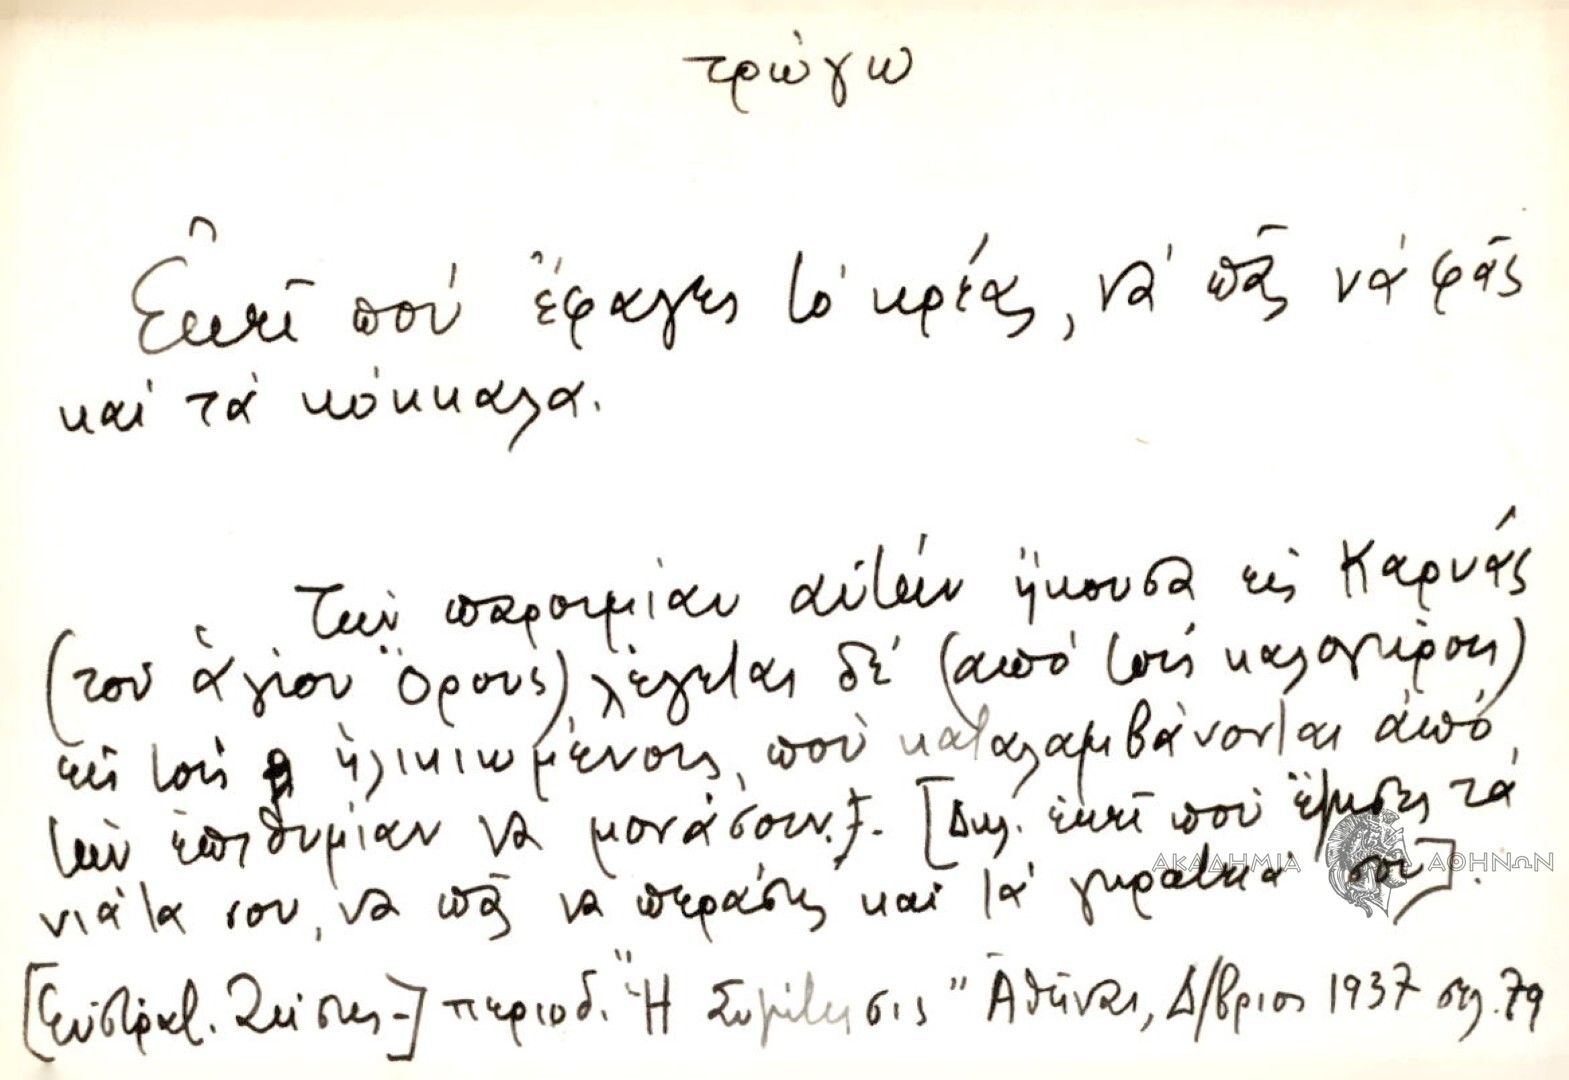 τρώγω
Ἐκεῖ ποὺ ἔφαγες τὸ κρέας, νὰ πᾷς νὰ φᾷς
καὶ τὰ κόκκαλα.
Τὴν παροιμίαν αὐτὴν ἤκουσα εἰς Καρυάς
(τοῦ ἁγίου Ὄρους), λέγεται δὲ (ἀπὸ τοὺς καλογήρους)
εἰς τοὺς ἡλικιωμένους, ποὺ καταλαμβάνονται ἀπὸ
τὴν ἐπιθυμίαν νὰ μονάσουν. [Δηλ. ἐκεῖ ποὺ ἔζησες τὰ
νιάτα σου, νὰ πᾷς νὰ περάσῃς καὶ τὰ γηρατειά σου].
περιοδ. "Ἡ Συζήτησις" Ἀθῆναι, Δ/βριος 1937 σελ. 79
ΑΚΑΔΗΜΙΑ ΑΘΗΝΩΝ